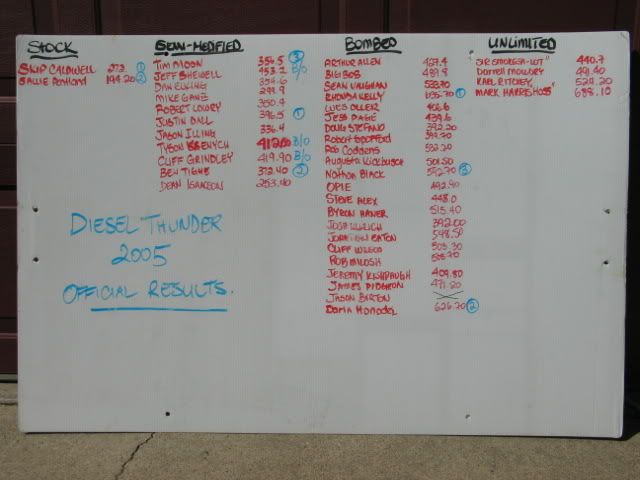 STOCK
SKIP CALDWELL 273 ①
SALLIE 194.20 ②
SEMI-MODIFIED
TIM MOON 354.5 ③
JEFF SHEWELL 453.2 B/O
DAN 354.6
MIKE GANZ 299.9
ROBERT LOWRY 350.4
JUSTIN BALL 396.5 ①
JASON ILLING 336.4
TYSON B/O
CLIFF GRINDLEY 419.90 B/O
BEN TIGHE 372.40 ②
DEAN ISAACSON 253.40
BOMBED
ARTHUR ALLEN 427.4
BIG BOB 489.8
SEAN VAUGHAN 533.70
RHONDA KELLY ①
WES OLLER 406.6
JESS PAGE 439.6
DOUG STEFANO 392.20
ROBERT 393.70
ROB CODDENS 532.20
AUGUSTA 501.50
NATHAN BLACK 592.70 ③
OPIE 492.90
STEVE ALEX 448.0
BYRON HANER 515.40
JOSH 392.00
JONATHAN EATON 548.50
CLIFF 503.30
ROB MILOSH 505.20
JEREMY KISHPAUGH 409.80
JAMES PIDGEON 471.20
JASON BURTON X
626.70 ②
UNLIMITED
440.7
Darrell MOWERY 491.40
KARL RITCHEY 524.20
MARK HARRIS 688.10
DIESEL THUNDER
2005
OFFICIAL RESULTS.